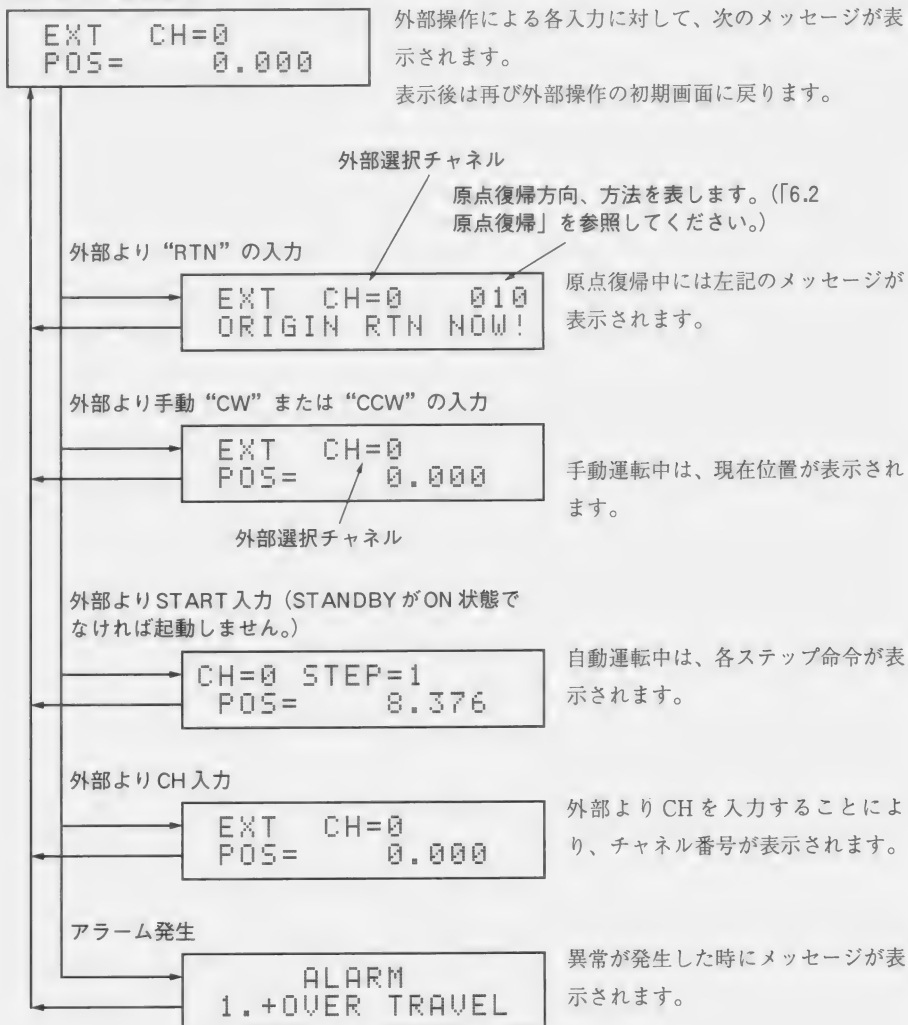 EXT CH=0
POS= 0.000
外部操作による各入力に対して、次のメッセージが表
示されます。
表示後は再び外部操作の初期画面に戻ります。
外部選択チャネル
原点復帰方向、方法を表します。(「6.2
原点復帰」を参照してください。)
外部より“RTN”の入力
EXT CH=0 010
ORIGIN RTN NOW!
原点復帰中には左記のメッセージが
表示されます。
外部より手動“CW”または“CCW”の入力
EXT CH=0
POS= 0.000
手動運転中は、現在位置が表示され
ます。
外部選択チャネル
外部よりSTART入力(STANDBYがON状態で
なければ起動しません。)
CH=0 STEP=1
POS= 8.376
自動運転中は、各ステップ命令が表
示されます。
外部よりCH入力
EXT CH=0
POS= 0.000
外部よりCHを入力することによ
り、チャネル番号が表示されます。
アラーム発生
ALARM
1.+OVER TRAVEL
異常が発生した時にメッセージが表
示されます。